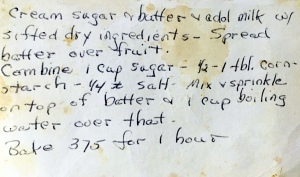 Cream sugar & butter & add milk w/
sifted dry ingredients - Spread
batter over fruit.
Combine 1 cup sugar - ½-1 tbl. corn-
starch - ¼ t salt. Mix & sprinkle
on top of batter & 1 cup boiling
water over that.
Bake 375 for 1 hour